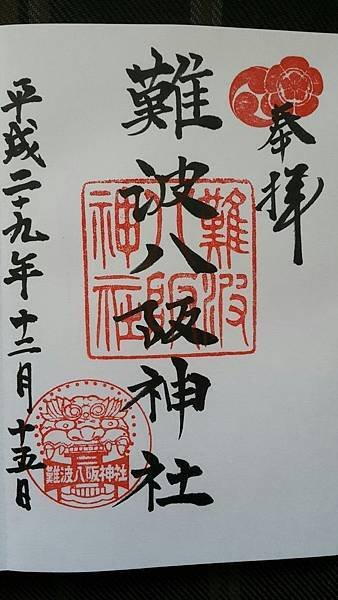 奉拝
難波八阪神社
難波八阪神社
平成二十九年十二月十五日
難波八阪神社